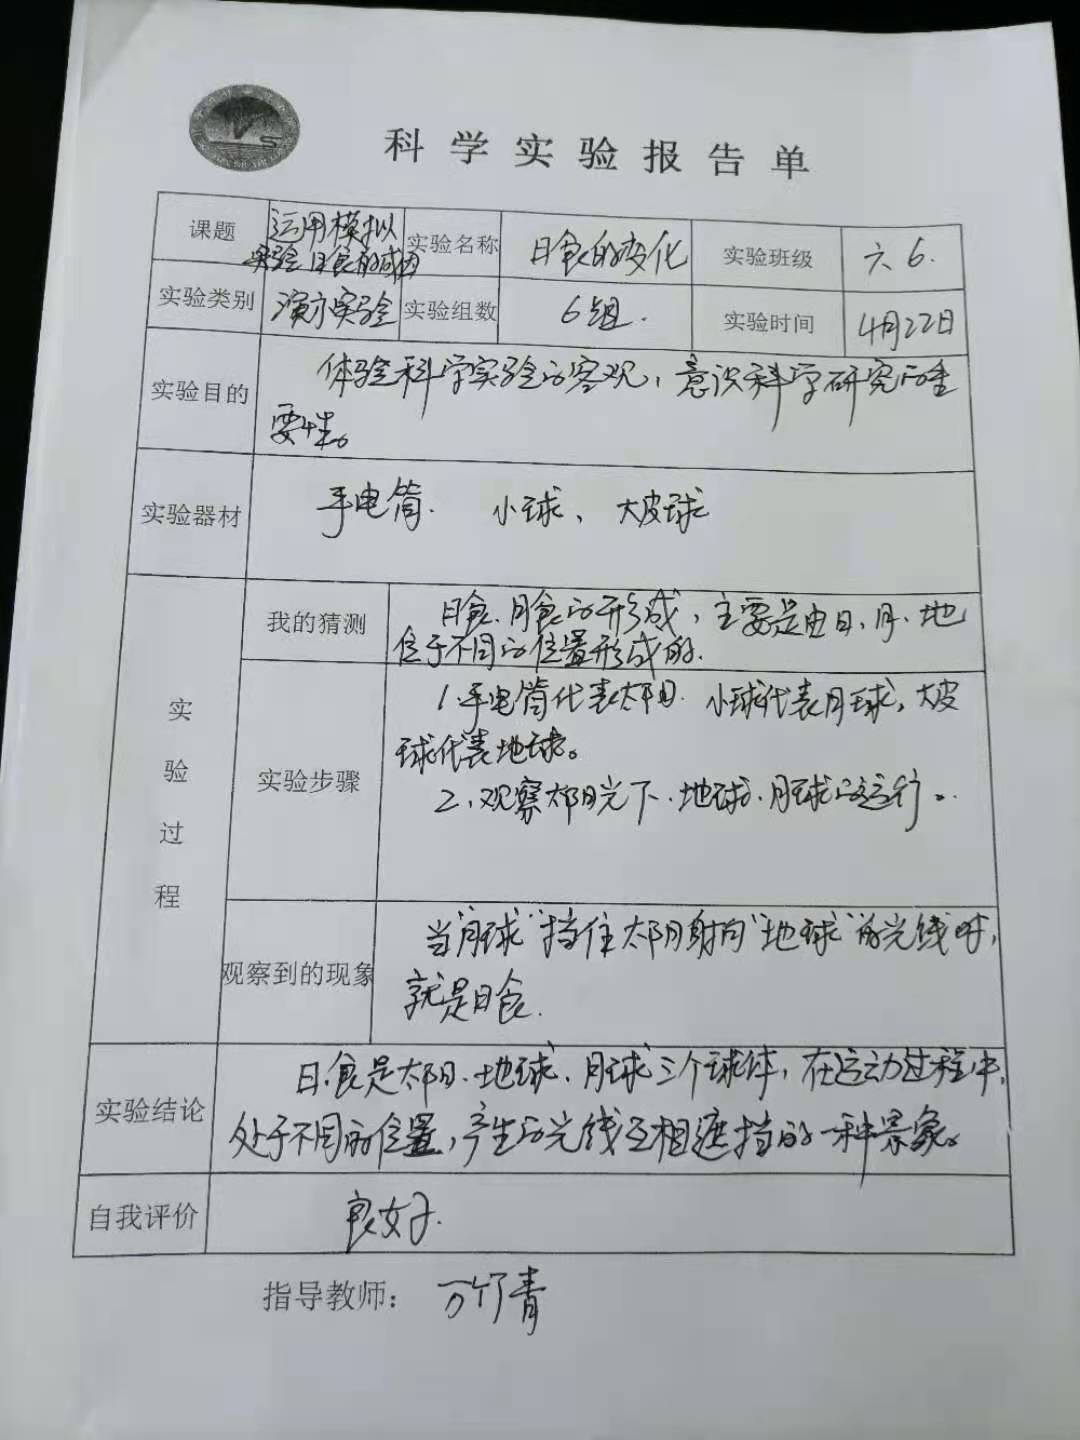 科学实验报告单
课题 运用模拟 实验名称 日食的变化 实验班级 六.6.
实验日食的成因
实验类别 演示实验 实验组数 6组. 实验时间 4月22日
实验目的 体验科学实验的客观,意识科学研究的重
要性。
实验器材 手电筒. 小球、大皮球
实验过程
我的猜测 日食.月食的形成,主要是由日、月、地
位于不同的位置形成的.
实验步骤 1.手电筒代表太阳.小球代表月球,大皮
球代表地球。
2、观察太阳光下.地球、月球的运行。
观察到的现象 当"月球"挡住太阳射向"地球"的光线时,
就是日食.
实验结论 日食是太阳、地球、月球三个球体,在运动过程中,
处于不同的位置,产生的光线互相遮挡的一种景象。
自我评价 良好.
指导教师: 万竹青